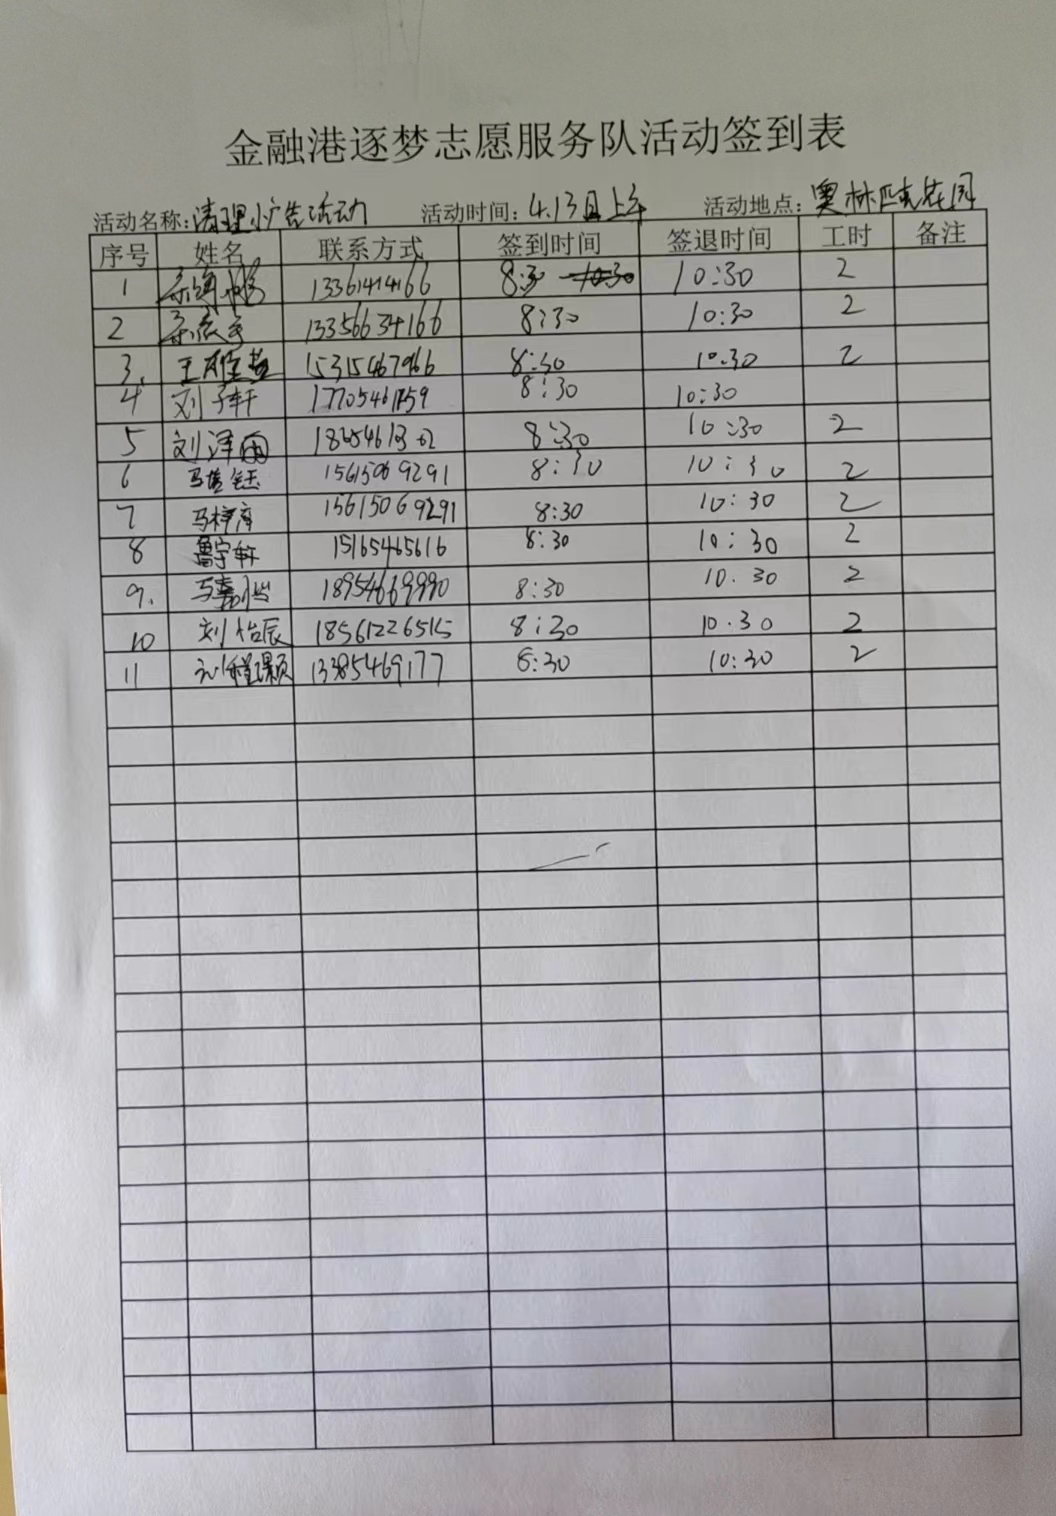 金融港逐梦志愿服务队活动签到表
活动名称:清理小广告活动 活动时间:4.13日上午 活动地点:奥林匹克花园
序号 姓名 联系方式 签到时间 签退时间 工时 备注
1 13361414166 8:30 10:30 10:30 2
2 13356634166 8:30 10:30 2
3. 王 15315467966 8:30 10:30 2
4 刘子轩 8:30 10:30
5 刘泽雨 8:30 10:30 2
6 马 15615069291 8:30 10:30 2
7 马梓齐 15615069291 8:30 10:30 2
8 鲁宇轩 15165465616 8:30 10:30 2
9. 马嘉 18954669990 8:30 10.30 2
10 刘怡辰 18561226515 8:30 10.30 2
11 13385469177 8:30 10:30 2